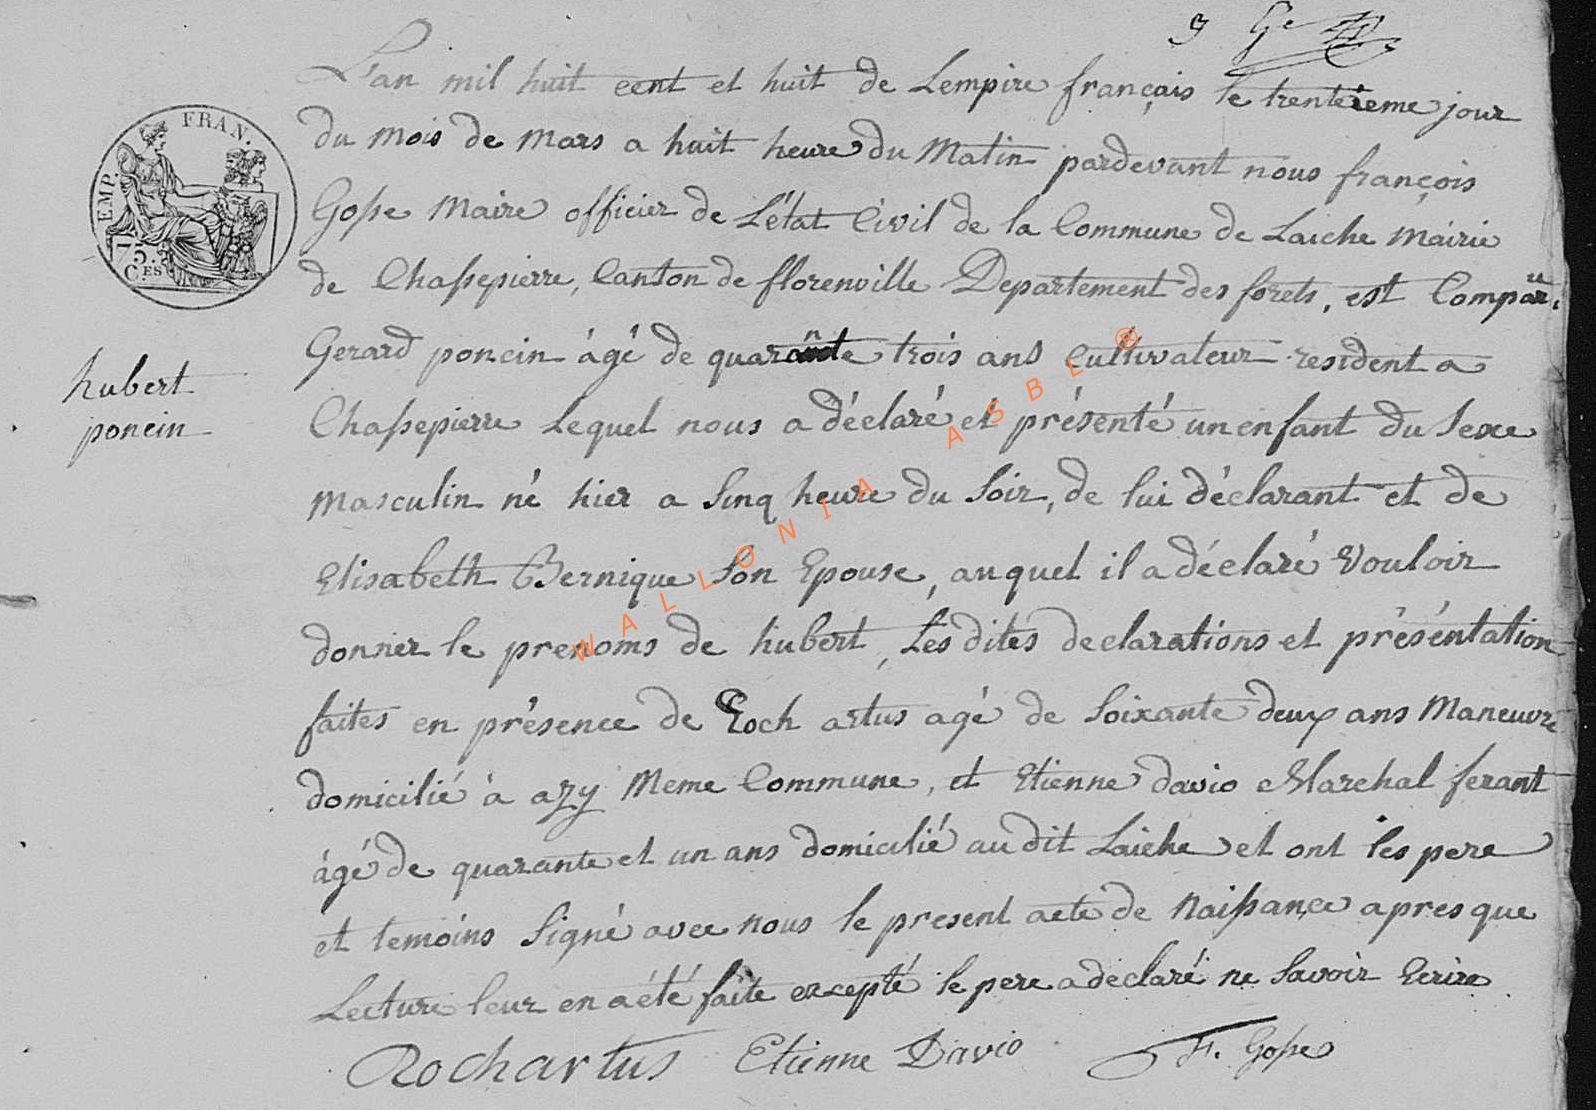 9 Ge
L'an mil huit cent et huit de Lempire français le trentieme jour
du mois de mars a huit heure du matin pardevant nous françois
Gosse maire officier de L'état Civil de la Commune de Laiche mairie
de Chassepierre, Canton de florenville Departement des forets, est Comparu
Gerard poncin âgé de quarante trois ans Cultivateur resident a
Chassepierre Lequel nous a déclaré et présenté un enfant du Sexe
masculin né hier a Sinq heure du Soir, de lui déclarant et de
Elisabeth Bernique Son Epouse, auquel il a déclaré Vouloir
donner le prenoms de hubert, Les dites declarations et présentation
faites en présence de Roch artus agé de Soixante deux ans Maneuvre
domicilié à azy Meme Commune, et Etienne davio Marchal ferant
âgé de quarante et un ans domicilié au dit Laiche et ont les pere
et temoins Signé avec nous le present acte de naissance apres que
Lecture leur en a été faite excepté le pere a declaré ne Savoir Ecrire
Rochartus Etienne Davio F. Gosse
hubert
poncin
EMP. FRAN.
75.
C.ES
WALLONIA ASBL ®